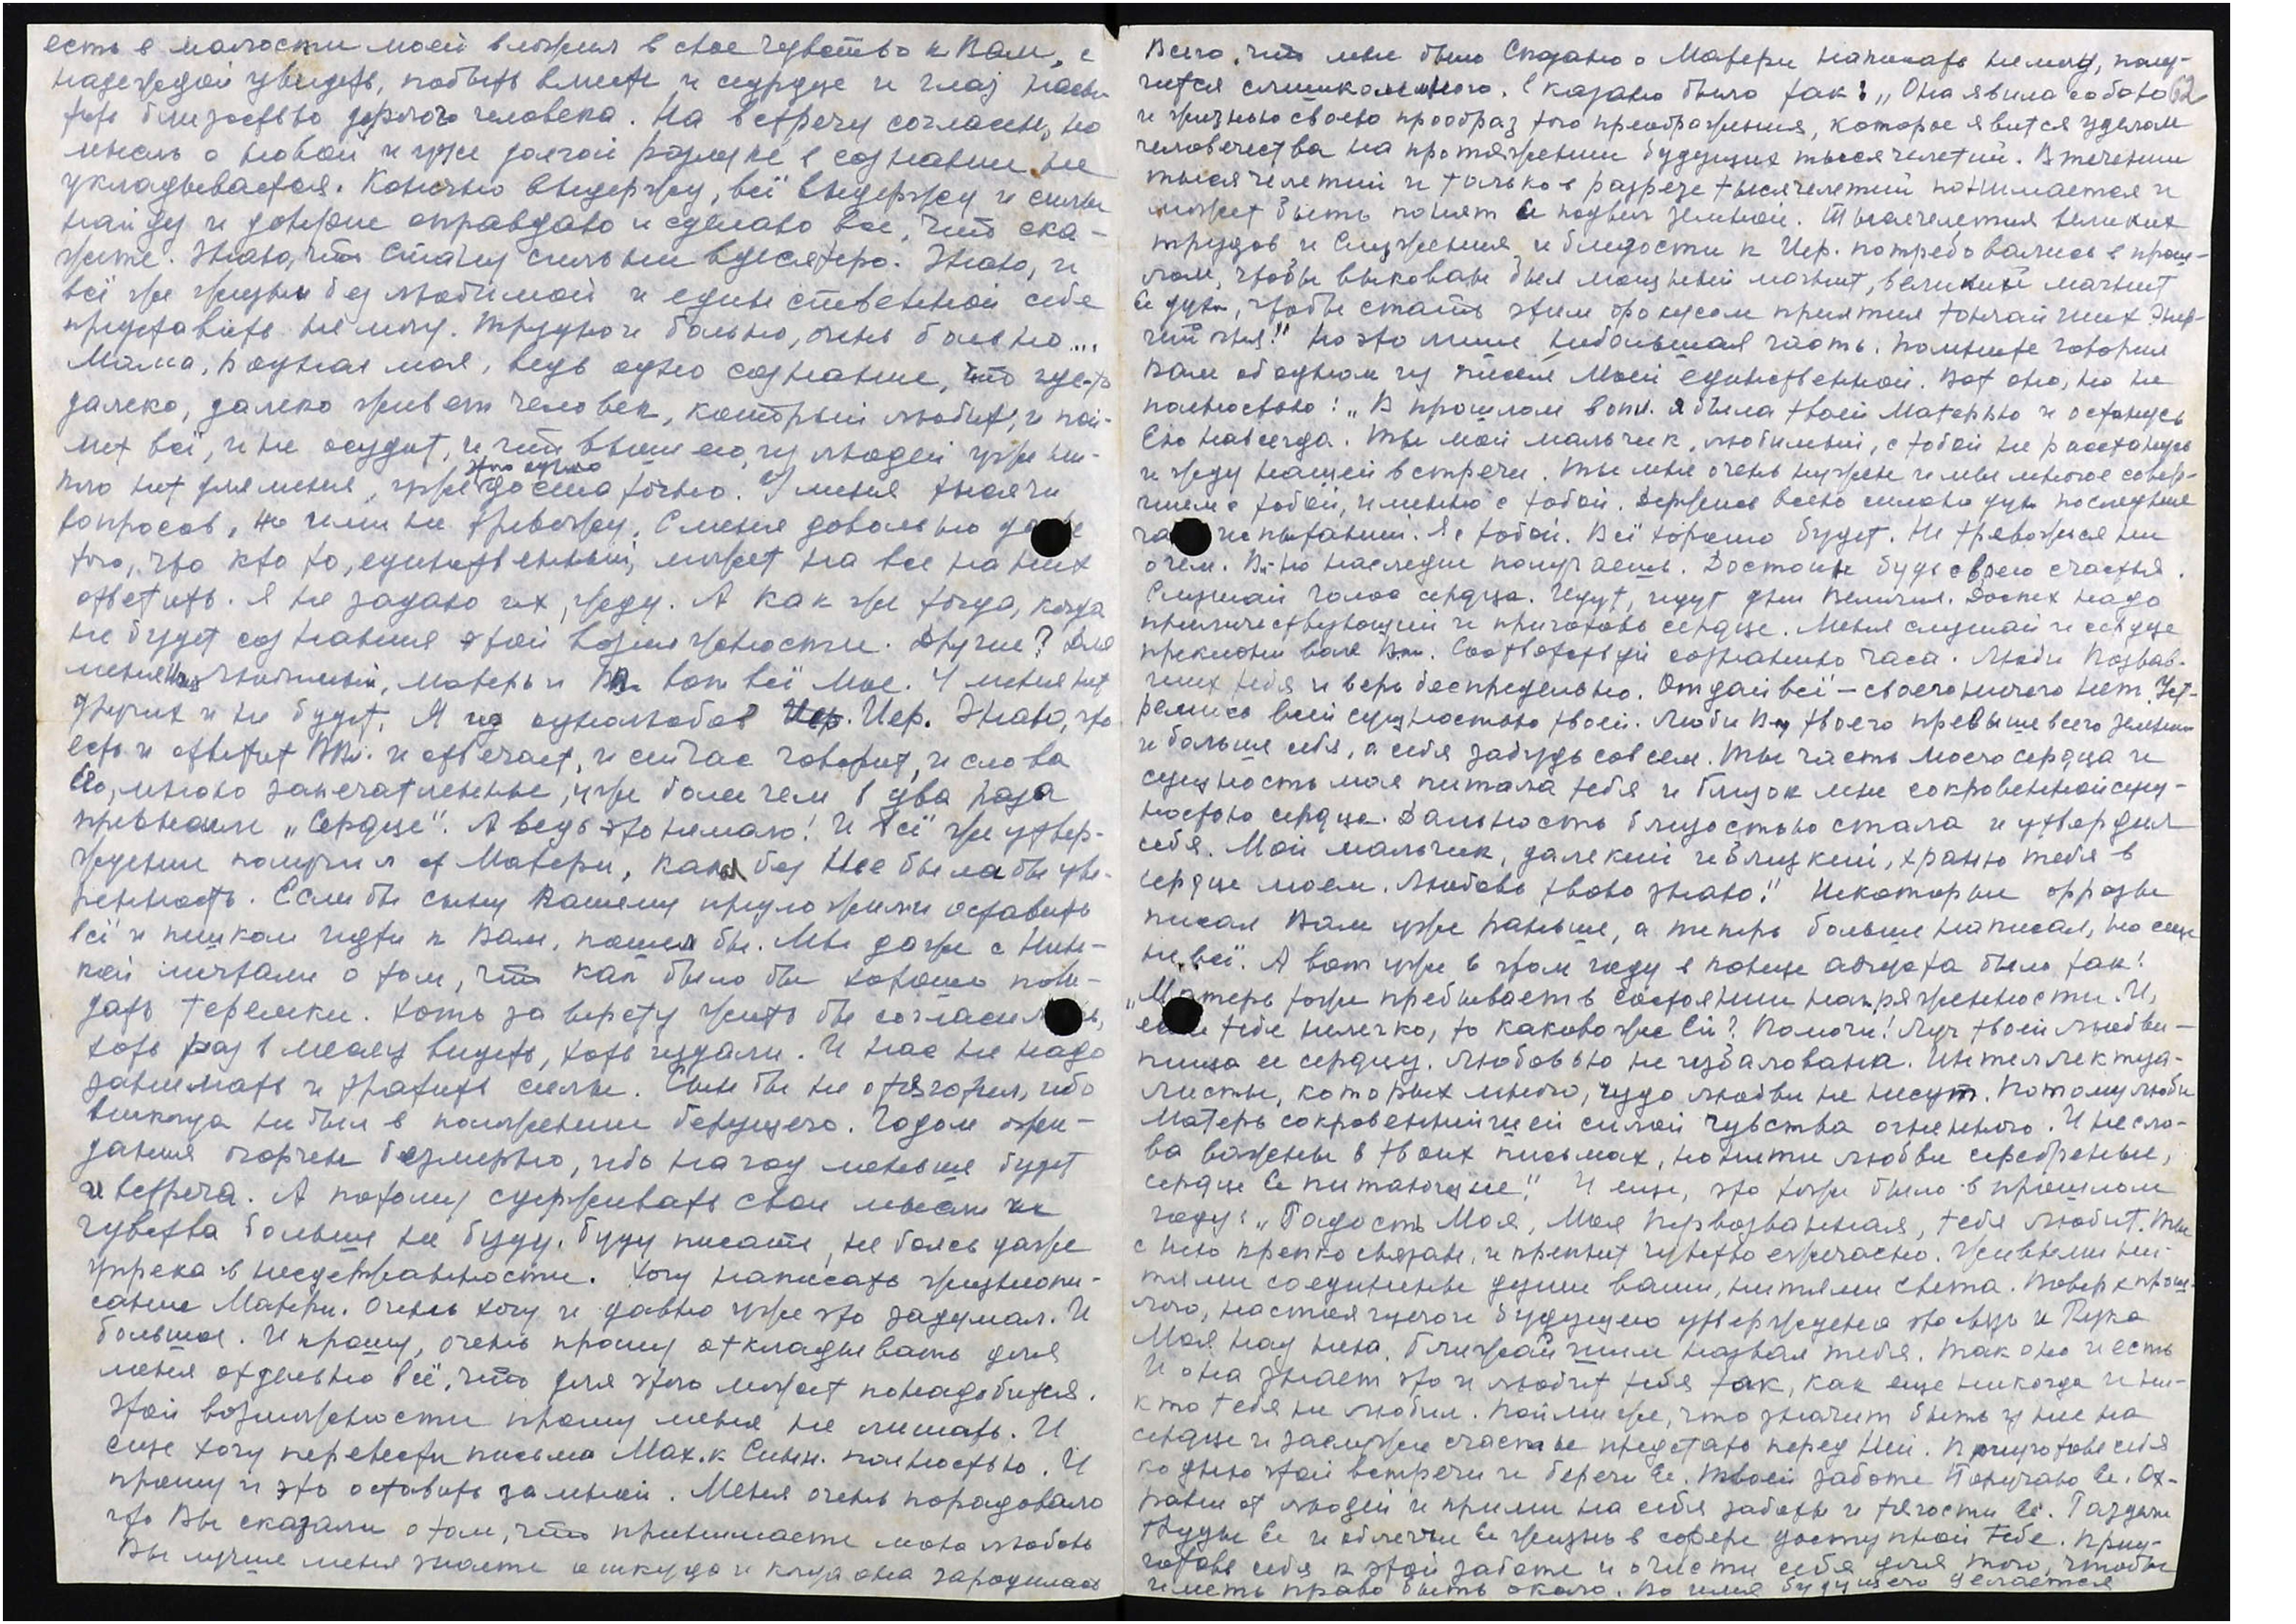 есть в малости моей вложил в свое чувство к Вам, с
надеждой увидеть, побыть вместе и сердце и глаз насы-
тить близостью дорогого человека. На встречу согласен, но
мысль о новой и уже долгой разлуке в сознании не
укладывается. Конечно выдержу, всё выдержу и силы
найду и доверие оправдаю и сделаю все, что ска-
жете. Знаю, что стану сильнее вдесятеро. Знаю, и
всё же жизни без любимой и единственной себе
представить не могу. Трудно и больно, очень больно...
Мама, родная моя, ведь одно сознание, что где-то
далеко, далеко живет человек, который любит, и пой-
мет всё, и не осудит, и что выше его из людей уже ни-
кого нет для меня, уже это одно достаточно. У меня тысячи
вопросов, но ими не тревожу. С меня довольно даже
того, что кто то, единственный, может на все на них
ответить. Я не задаю их, жду. А как же тогда, когда
не будет сознания этой возможности. Другие? Для
меня Любимый, Матерь и Вл. вот всё мое. У меня нет
других и не будет. Я из однолюбов Иер. Знаю, что
есть и ответит Вл. и отвечает, и сейчас говорит, и слова
Его, мною запечатленные, уже более чем в два раза
превысили „Сердце". А ведь это немало! И всё же утвер-
ждение получил от Матери, какая без Нее была бы уве-
ренность. Если бы сыну Вашему предложили оставить
всё и пешком идти к Вам, пошел бы. Мы даже с Нин-
кой мечтали о том, что как было бы хорошо пови-
дать теремки. Хоть за версту жить бы согласились,
хоть раз в месяц видеть, хоть издали. И нас не надо
занимать и тратить силы. Сын бы не отяготил, ибо
никогда не был в положении берущего. Годом ожи-
дания огорчен безмерно, ибо на год меньше будет
и встреча. А потому сдерживать свои мысли и
чувства больше не буду, буду писать, не боясь даже
упрека в несдержанности. Хочу написать жизнеопи-
сание Матери. Очень хочу и давно уже это задумал. И
большое. И прошу, очень прошу откладывать для
меня отдельно всё, что для этого может понадобится.
Этой возможности прошу меня не лишать. И
еще хочу перевести письма Мах. к Синн. полностью. И
прошу и это оставить за мной. Меня очень порадовало
что Вы сказали о том, что принимаете мою любовь
Вы лучше меня знаете откуда и когда она зародилась
Всего, что мне было Сказано о Матери написать не могу, полу-
чится слишком много. Сказано было так: „Она явила собою 62
и жизнью своею прообраз того преображения, которое явится уделом
человечества на протяжении будущих тысячелетий. В течении
тысячелетий и только в разрезе тысячелетий понимается и
может быть понят Ее подвиг земной. Тысячелетия великих
трудов и Служения и близости к Иер. потребовались в прош-
лом, чтобы выкован был мощный магнит, великий магнит
Ее духа, чтобы стать этим фокусом принятия тончайших энер-
гий огня!" Но это лишь небольшая часть. Помните говорил
Вам об одном из писем Моей единственной. Вот оно, но не
полностью: „В прошлом я была твоей Матерью и останусь
Ею навсегда. Ты мой мальчик, любимый, с тобой не расстанусь
и жду нашей встречи. Ты мне очень нужен и мы многое совер-
шим с тобой, именно с тобой. Держись всею силою духа последние
часы испытаний. Я с тобой. Всё хорошо будет. Не тревожься ни
о чем. наследие получаешь. Достоин будь своего счастья.
Слушай голос сердца. Идут, идут дни Величия. Доспех надо
приличествующий и приготовь сердце. Меня слушай и сердце
преклони воле Вл. Соответствуй сознанию часа. Люби Позвав-
ших тебя и верь беспредельно. Отдай всё — своего ничего нет. Уст-
ремись всей сущностью твоей. Люби Вл. твоего превыше всего земного
и больше себя, а себя забудь совсем. Ты часть моего сердца и
сущность моя питала тебя и близок мне сокровенной сущ-
ностью сердца. Дальность близостью стала и утвердил
себя. Мой мальчик, далекий и близкий, храню тебя в
сердце моем. Любовь твою знаю!" Некоторые фразы
писал Вам уже раньше, а теперь больше написал, но еще
не всё. А вот уже в этом году в конце августа было так:
„Матерь тоже пребывает в состоянии напряженности. И,
если тебе нелегко, то каково же Ей? Помоги! Луч твоей любви —
пища ее сердцу. Любовью не избалована. Интеллектуа-
листы, которых много, чудо любви не несут. Потому люби
Матерь сокровеннейшей силой чувства огненного. И не сло-
ва важны в твоих письмах, но нити любви серебряные,
сердце Ее питающие". И еще, это тоже было в прошлом
году: „Радость Моя, Моя Первозванная, тебя любит. Ты
с нею крепко связан, и крепнет чувство ежечасно. Живыми ни-
тями соединены души ваши, нитями света. Поверх прош-
лого, настоящего и будущего утверждена эта связь и Рука
Моя над нею. Ближайшим назвал тебя. Так оно и есть
И она знает это и любит тебя так, как еще никогда и ни-
кто тебя не любил. Пойми же, что значит быть у нее на
сердце и заслужи счастье предстать перед Ней. Приготовь себя
ко дню этой встречи и береги Ее. Твоей заботе Поручаю Ее. Ох-
рани от людей и прими на себя заботы и тягости Ее. Раздели
труды Ее и облегчи Ее жизнь в сфере доступной тебе. Приу-
готовь себя к этой заботе и очисти себя для того, чтобы
иметь право быть около. Во имя будущего делается